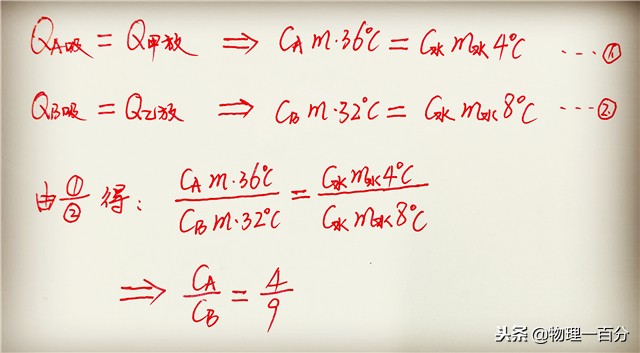 Q_A吸 = Q_甲放 ⇒ C_A m·36℃ = C_水 m_水 4℃ ···①
Q_B吸 = Q_乙放 ⇒ C_B m·32℃ = C_水 m_水 8℃ ···②
由①/② 得: C_A m·36℃ / C_B m·32℃ = C_水 m_水 4℃ / C_水 m_水 8℃
⇒ C_A / C_B = 4 / 9
头条 @物理一百分